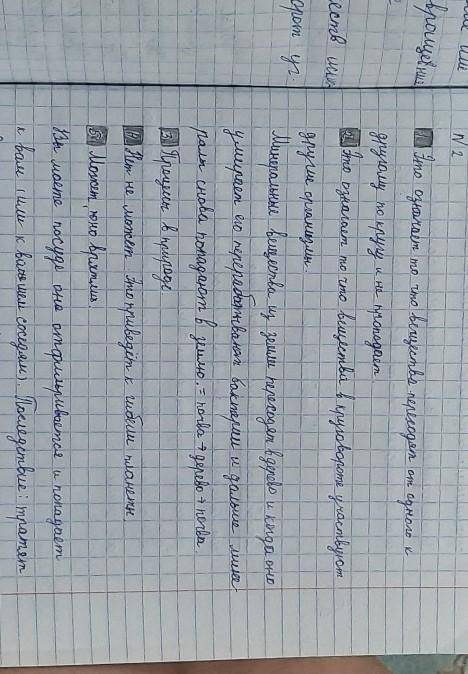 ое или
вращений
еств ми
орот уг.
N 2
1 Это означает то что вещества переходят от одного к
другому по кругу и не пропадает
2 Это означает то что вещества в круговороте участвуют
другие организмы.
Минеральные вещества из земли переходят в дерево и когда оно
умирает его перерабатывают бактерии и дальше мине
ралы снова попадают в землю. = почва → дерево → почва.
3 Процессы в природе
4 Нет не может. Это приведёт к гибели планеты.
5 Может но временно.
Вы моете посуду она отфильтровывается и попадает
к вам (или к вашем соседям). Последствие: тратят